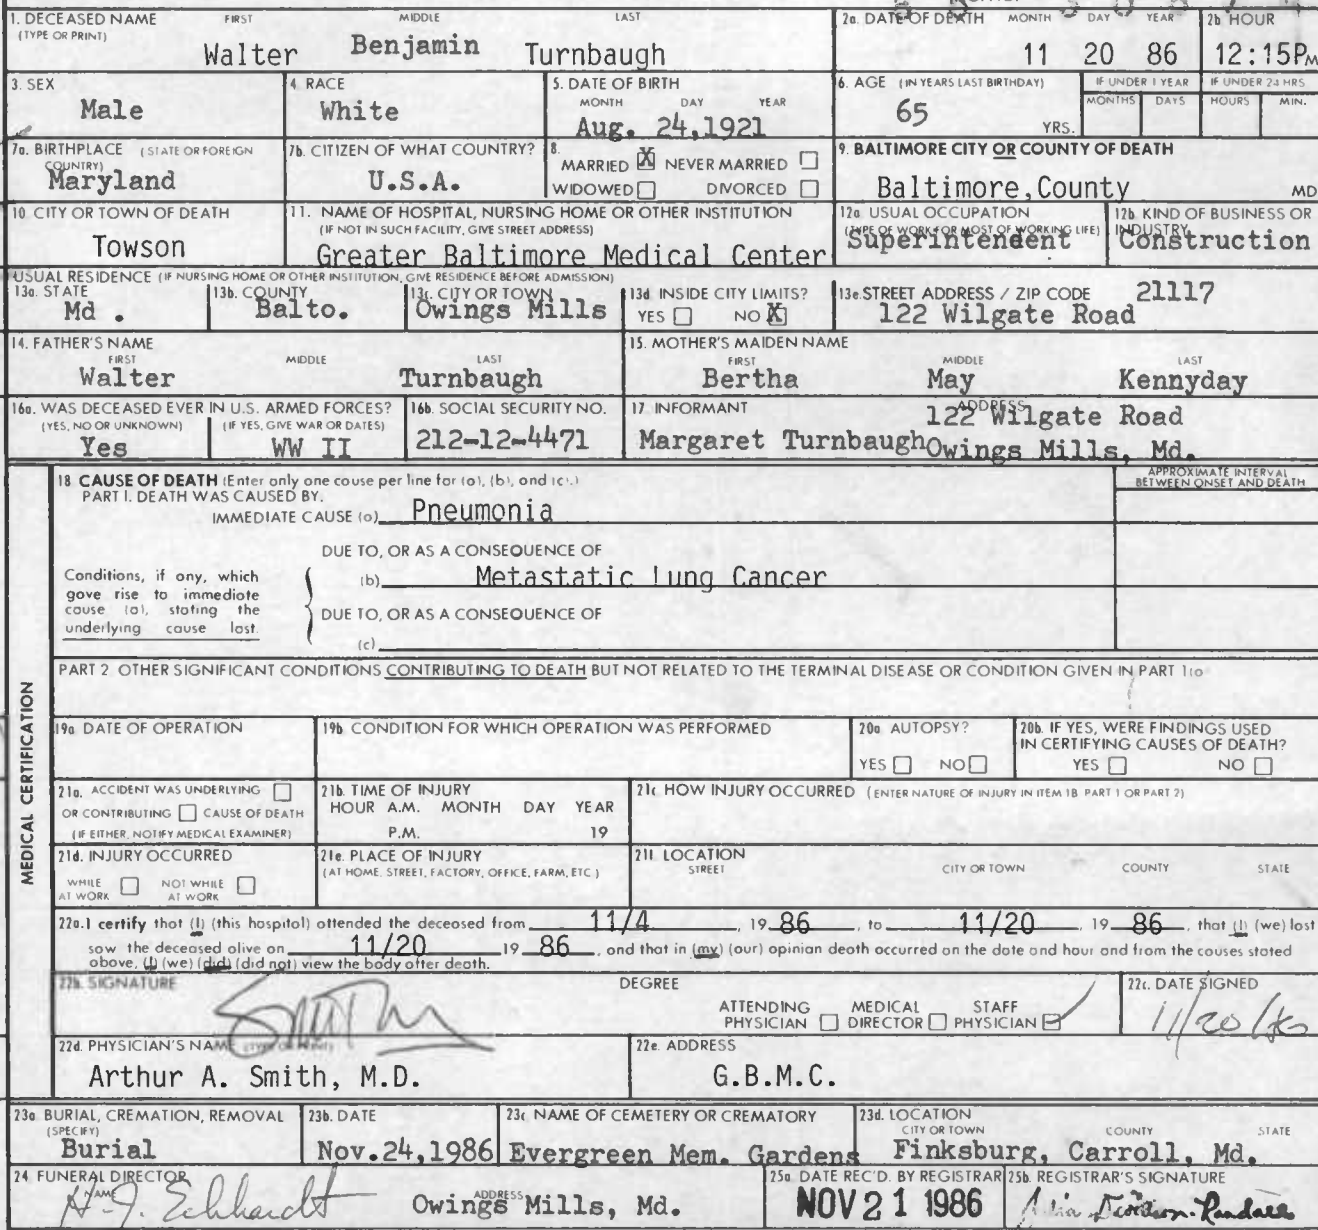 1. DECEASED NAME FIRST MIDDLE LAST
(TYPE OR PRINT)
Walter Benjamin Turnbaugh
2a. DATE OF DEATH MONTH DAY YEAR
11 20 86
2b HOUR
12:15PM
3. SEX
Male
4. RACE
White
5. DATE OF BIRTH
MONTH DAY YEAR
Aug. 24,1921
6. AGE (IN YEARS LAST BIRTHDAY)
65 YRS.
IF UNDER 1 YEAR
MONTHS DAYS
IF UNDER 24 HRS
HOURS MIN.
7a. BIRTHPLACE (STATE OR FOREIGN COUNTRY)
Maryland
7b. CITIZEN OF WHAT COUNTRY?
U.S.A.
8.
MARRIED X NEVER MARRIED
WIDOWED DIVORCED
9. BALTIMORE CITY OR COUNTY OF DEATH
Baltimore,County MD
10 CITY OR TOWN OF DEATH
Towson
11. NAME OF HOSPITAL, NURSING HOME OR OTHER INSTITUTION
(IF NOT IN SUCH FACILITY, GIVE STREET ADDRESS)
Greater Baltimore Medical Center
12a USUAL OCCUPATION
(TYPE OF WORK FOR MOST OF WORKING LIFE)
Superintendent
12b. KIND OF BUSINESS OR INDUSTRY
Construction
USUAL RESIDENCE (IF NURSING HOME OR OTHER INSTITUTION, GIVE RESIDENCE BEFORE ADMISSION)
13a. STATE
Md .
13b. COUNTY
Balto.
13c. CITY OR TOWN
Owings Mills
13d INSIDE CITY LIMITS?
YES NO X
13e. STREET ADDRESS / ZIP CODE 21117
122 Wilgate Road
14. FATHER'S NAME
FIRST MIDDLE LAST
Walter Turnbaugh
15. MOTHER'S MAIDEN NAME
FIRST MIDDLE LAST
Bertha May Kennyday
16a. WAS DECEASED EVER IN U.S. ARMED FORCES?
(YES, NO OR UNKNOWN) (IF YES, GIVE WAR OR DATES)
Yes WW II
16b. SOCIAL SECURITY NO.
212-12-4471
17 INFORMANT ADDRESS
Margaret Turnbaugh 122 Wilgate Road
Owings Mills, Md.
18 CAUSE OF DEATH (Enter only one cause per line for (a), (b), and (c).)
APPROXIMATE INTERVAL BETWEEN ONSET AND DEATH
PART I. DEATH WAS CAUSED BY.
IMMEDIATE CAUSE (a) Pneumonia
DUE TO, OR AS A CONSEQUENCE OF
(b) Metastatic Lung Cancer
Conditions, if any, which
gove rise to immediate
couse (a), stating the
underlying cause last.
DUE TO, OR AS A CONSEQUENCE OF
(c)
PART 2 OTHER SIGNIFICANT CONDITIONS CONTRIBUTING TO DEATH BUT NOT RELATED TO THE TERMINAL DISEASE OR CONDITION GIVEN IN PART 1(a
MEDICAL CERTIFICATION
19a DATE OF OPERATION
19b. CONDITION FOR WHICH OPERATION WAS PERFORMED
20a AUTOPSY?
YES NO
20b. IF YES, WERE FINDINGS USED
IN CERTIFYING CAUSES OF DEATH?
YES NO
21a. ACCIDENT WAS UNDERLYING
OR CONTRIBUTING CAUSE OF DEATH
(IF EITHER, NOTIFY MEDICAL EXAMINER)
21b. TIME OF INJURY
HOUR A.M. MONTH DAY YEAR
P.M. 19
21c HOW INJURY OCCURRED (ENTER NATURE OF INJURY IN ITEM 18 PART 1 OR PART 2)
21d. INJURY OCCURRED
WHILE AT WORK NOT WHILE AT WORK
21e. PLACE OF INJURY
(AT HOME, STREET, FACTORY, OFFICE, FARM, ETC.)
21f. LOCATION
STREET CITY OR TOWN COUNTY STATE
22a. I certify that (I) (this hospital) attended the deceased from 11/4, 19 86, to 11/20, 19 86, that (I) (we) lost
sow the deceased alive on 11/20 19 86, and that in (my) (our) opinion death occurred on the date and hour and from the causes stated
above, (I) (we) (did) (did not) view the body after death.
22b. SIGNATURE DEGREE
Smith
ATTENDING PHYSICIAN MEDICAL DIRECTOR STAFF PHYSICIAN
22c. DATE SIGNED
11/20/86
22d. PHYSICIAN'S NAME (TYPE OR PRINT)
Arthur A. Smith, M.D.
22e. ADDRESS
G.B.M.C.
23a BURIAL, CREMATION, REMOVAL
(SPECIFY)
Burial
23b. DATE
Nov.24,1986
23c NAME OF CEMETERY OR CREMATORY
Evergreen Mem. Gardens
23d. LOCATION
CITY OR TOWN COUNTY STATE
Finksburg, Carroll, Md.
24 FUNERAL DIRECTOR
NAME ADDRESS
H.J. Eckhardt Owings Mills, Md.
25a. DATE REC'D. BY REGISTRAR
NOV 21 1986
25b. REGISTRAR'S SIGNATURE